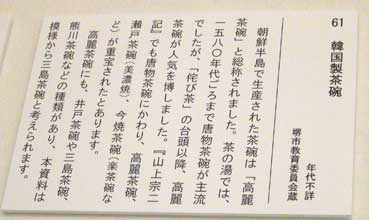 61 韓国製茶碗
年代不詳
堺市教育委員会蔵
朝鮮半島で生産された茶碗は「高麗
茶碗」と総称されました。茶の湯では、
一五八〇年代ごろまで唐物茶碗が主流
でしたが、「侘び茶」の台頭以降、高麗
茶碗が人気を博しました。『山上宗二
記』でも唐物茶碗にかわり、高麗茶碗、
瀬戸茶碗（美濃焼）、今焼茶碗（楽茶碗な
ど）が重宝されたとあります。
高麗茶碗にも、井戸茶碗や三島茶碗、
熊川茶碗などの種類があり、本資料は
模様から三島茶碗と考えられます。